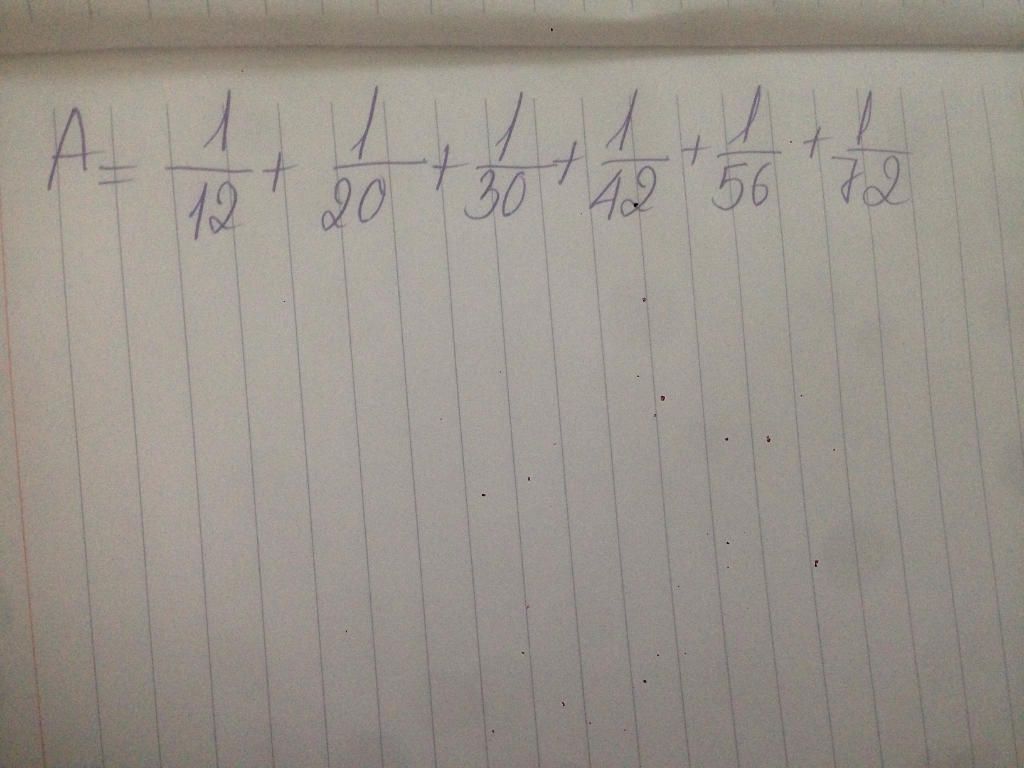 A = 1/12 + 1/20 + 1/30 + 1/42 + 1/56 + 1/72